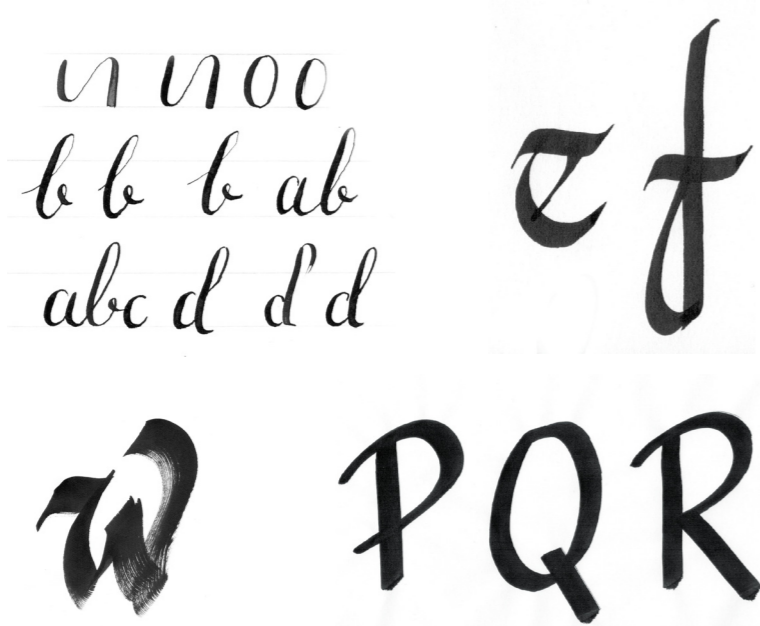 u u o o
b b b ab
abc d d d
e f
w
P Q R